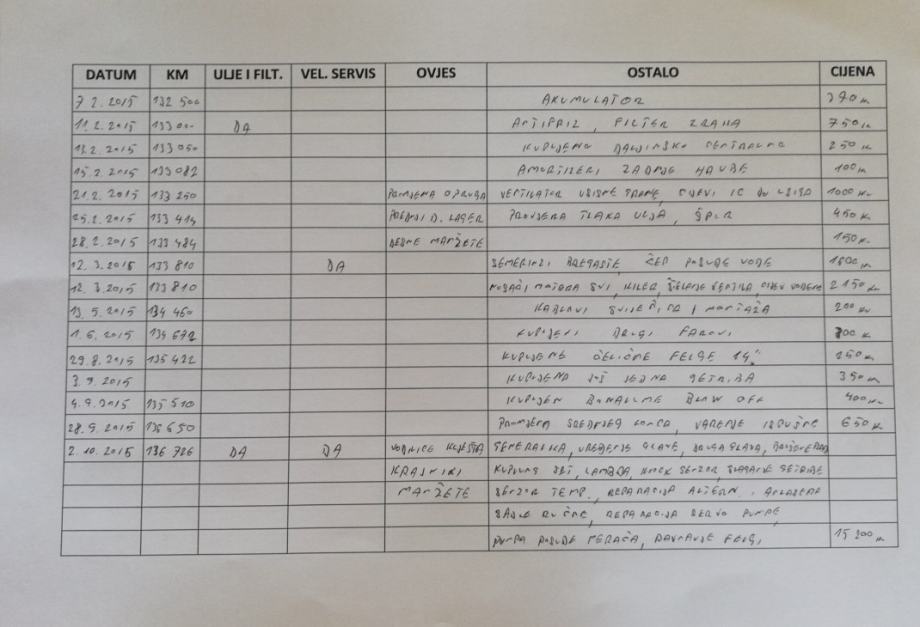 DATUM KM ULJE I FILT. VEL. SERVIS OVJES OSTALO CIJENA
7.2.2015 132 500 AKUMULATOR 390 kn
11.2.2015 133 000 DA ANTIFRIZ, FILTER ZRAKA 750 kn
13.2.2015 133 050 KUPLJENO DALJINSKO CENTRALNO 250 kn
15.2.2015 133 082 AMORTIZERI ZADNJE HAUBE 100 kn
21.2.2015 133 250 PROMJENA OPRUGA VENTILATOR USISNE GRANE, CIJEVI IC DO USISA 1000 kn
25.2.2015 133 414 PREDNJI D. LAGER PROVJERA TLAKA ULJA, ŠPUR 450 kn
28.2.2015 133 484 DESNE MANŽETE 150 kn
12.3.2015 133 810 DA SEMERINZI BREGASTE, ČEP POSUDE VODE 1800 kn
12.3.2015 133 810 NOSAČI MOTORA SVI, KILER, CIJEV VODENE 2150 kn
13.5.2015 134 460 KABLOVI SVIJEĆICA I MONTAŽA 200 kn
1.6.2015 134 672 KUPLJENI DRUGI FAROVI kn
29.8.2015 135 422 KUPLJENE ČELIČNE FELGE 14" 250 kn
3.9.2015 KUPLJENA JOŠ JEDNA SETRIBA 350 kn
4.9.2015 135 510 KUPLJEN BLOW OFF 400 kn
28.9.2015 136 650 PROMJENA SREDNJEG LONCA, VARENJE ISPUŠNE 650 kn
2.10.2015 136 726 DA DA VODILICE KLIJEŠTA GENERALKA, UREĐENJE GLAVE, DRUGA GLAVA,
KRAJNIKI KUPLUNG SET, LAMBDA, KNOCK SENZOR, SLAGANJE
MANŽETE SENZOR TEMP., REPARACIJA ALTERN.,
SAJLE RUČNE, REPARACIJA SERVO PUMPE,
PUMPA POSUDE PERAČA, RAVNANJE FELGI 15 200 kn